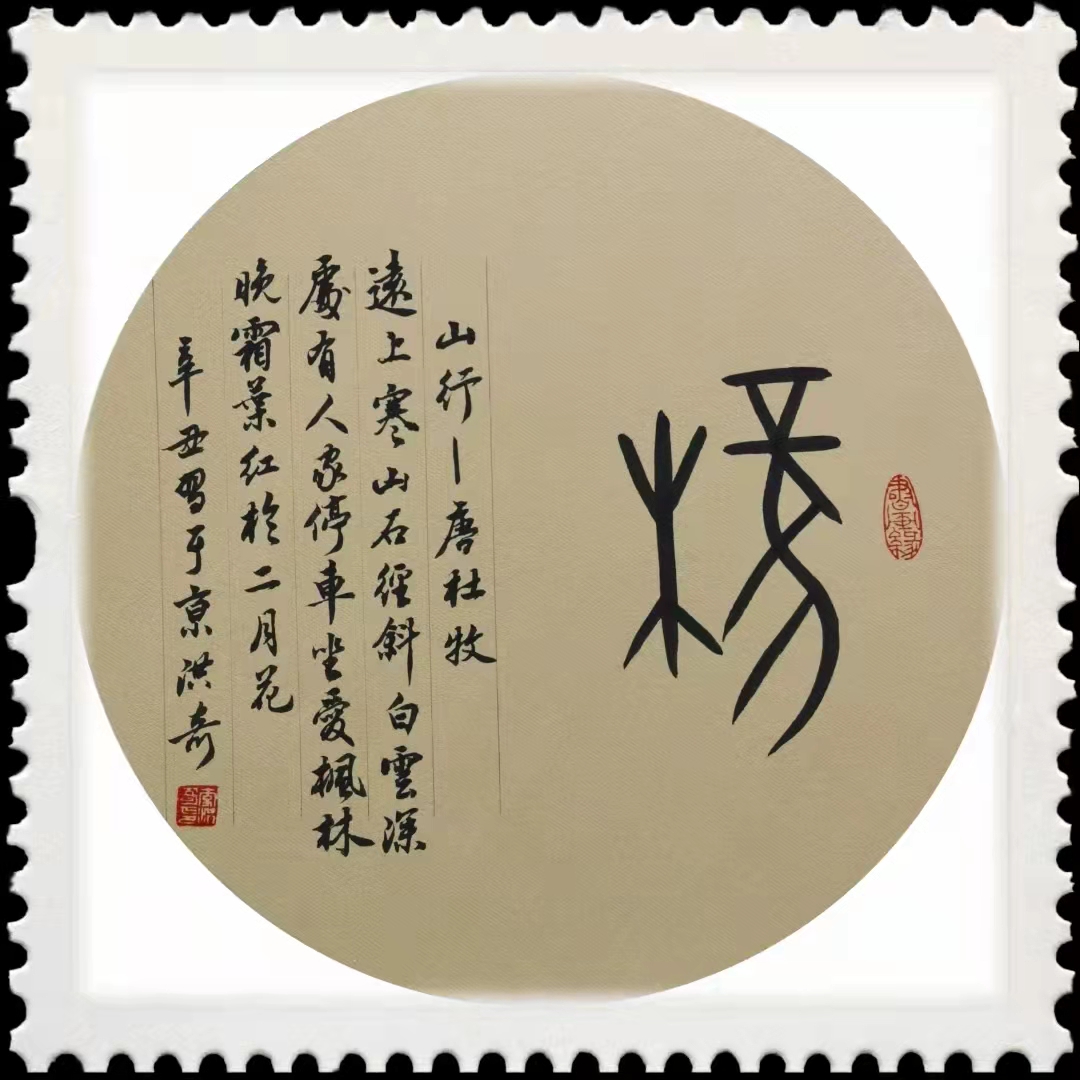 山行—唐杜牧
遠上寒山石徑斜白雲深
處有人家停車坐愛楓林
晚霜葉红於二月花
辛丑習于京洪奇